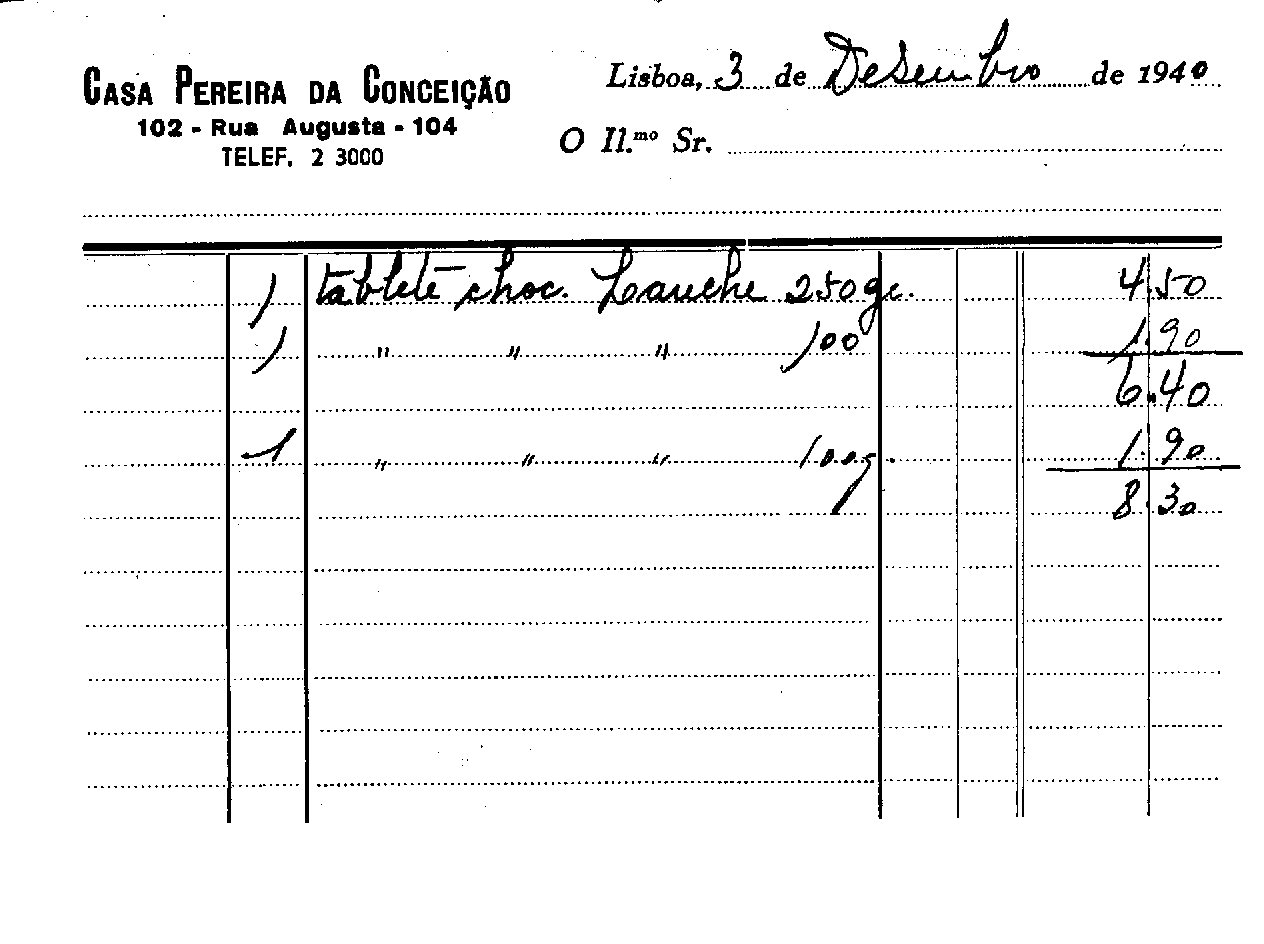 CASA PEREIRA DA CONCEIÇÃO
102 - Rua Augusta - 104
TELEF. 2 3000
Lisboa, 3 de Desembro de 1940
O Il.mo Sr.
1 tablete choc. 250gr. 4.50
1 " " " 100 1.90
6.40
1 " " " 100g. 1.90
8.30